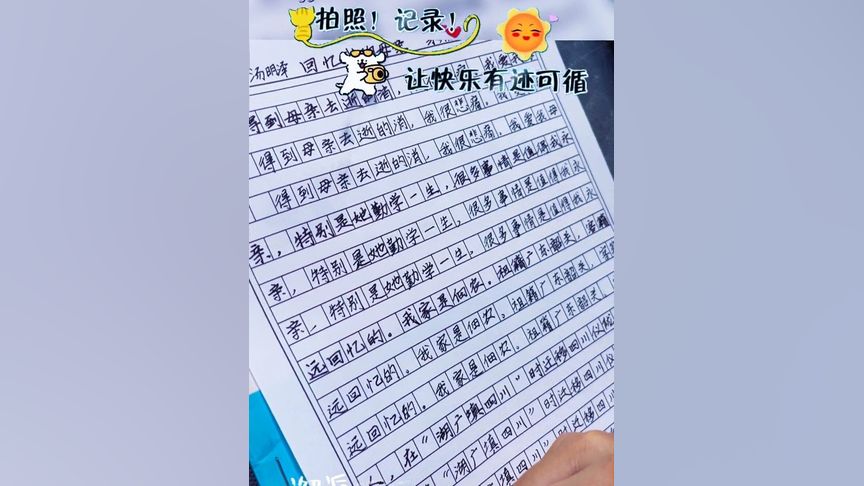 拍照！记录！
让快乐有迹可循
汤明泽 回忆
得到母亲去逝的消，
得到母亲去逝的消，我很悲痛，
得到母亲去逝的消，我很悲痛，我爱我母
亲，特别是她勤学一生，很多事情是值得我永
亲，特别是她勤学一生，很多事情是值得我永
亲，特别是她勤学一生，很多事情是值得我永
远回忆的。我家是佃农。祖籍广东韶关，
远回忆的。我家是佃农。祖籍广东韶关，
远回忆的。我家是佃农。祖籍广东韶关，
人，在“湖广填四川”时迁移四川仪
“湖广填四川”时迁移四川仪
填四川”时迁移四川